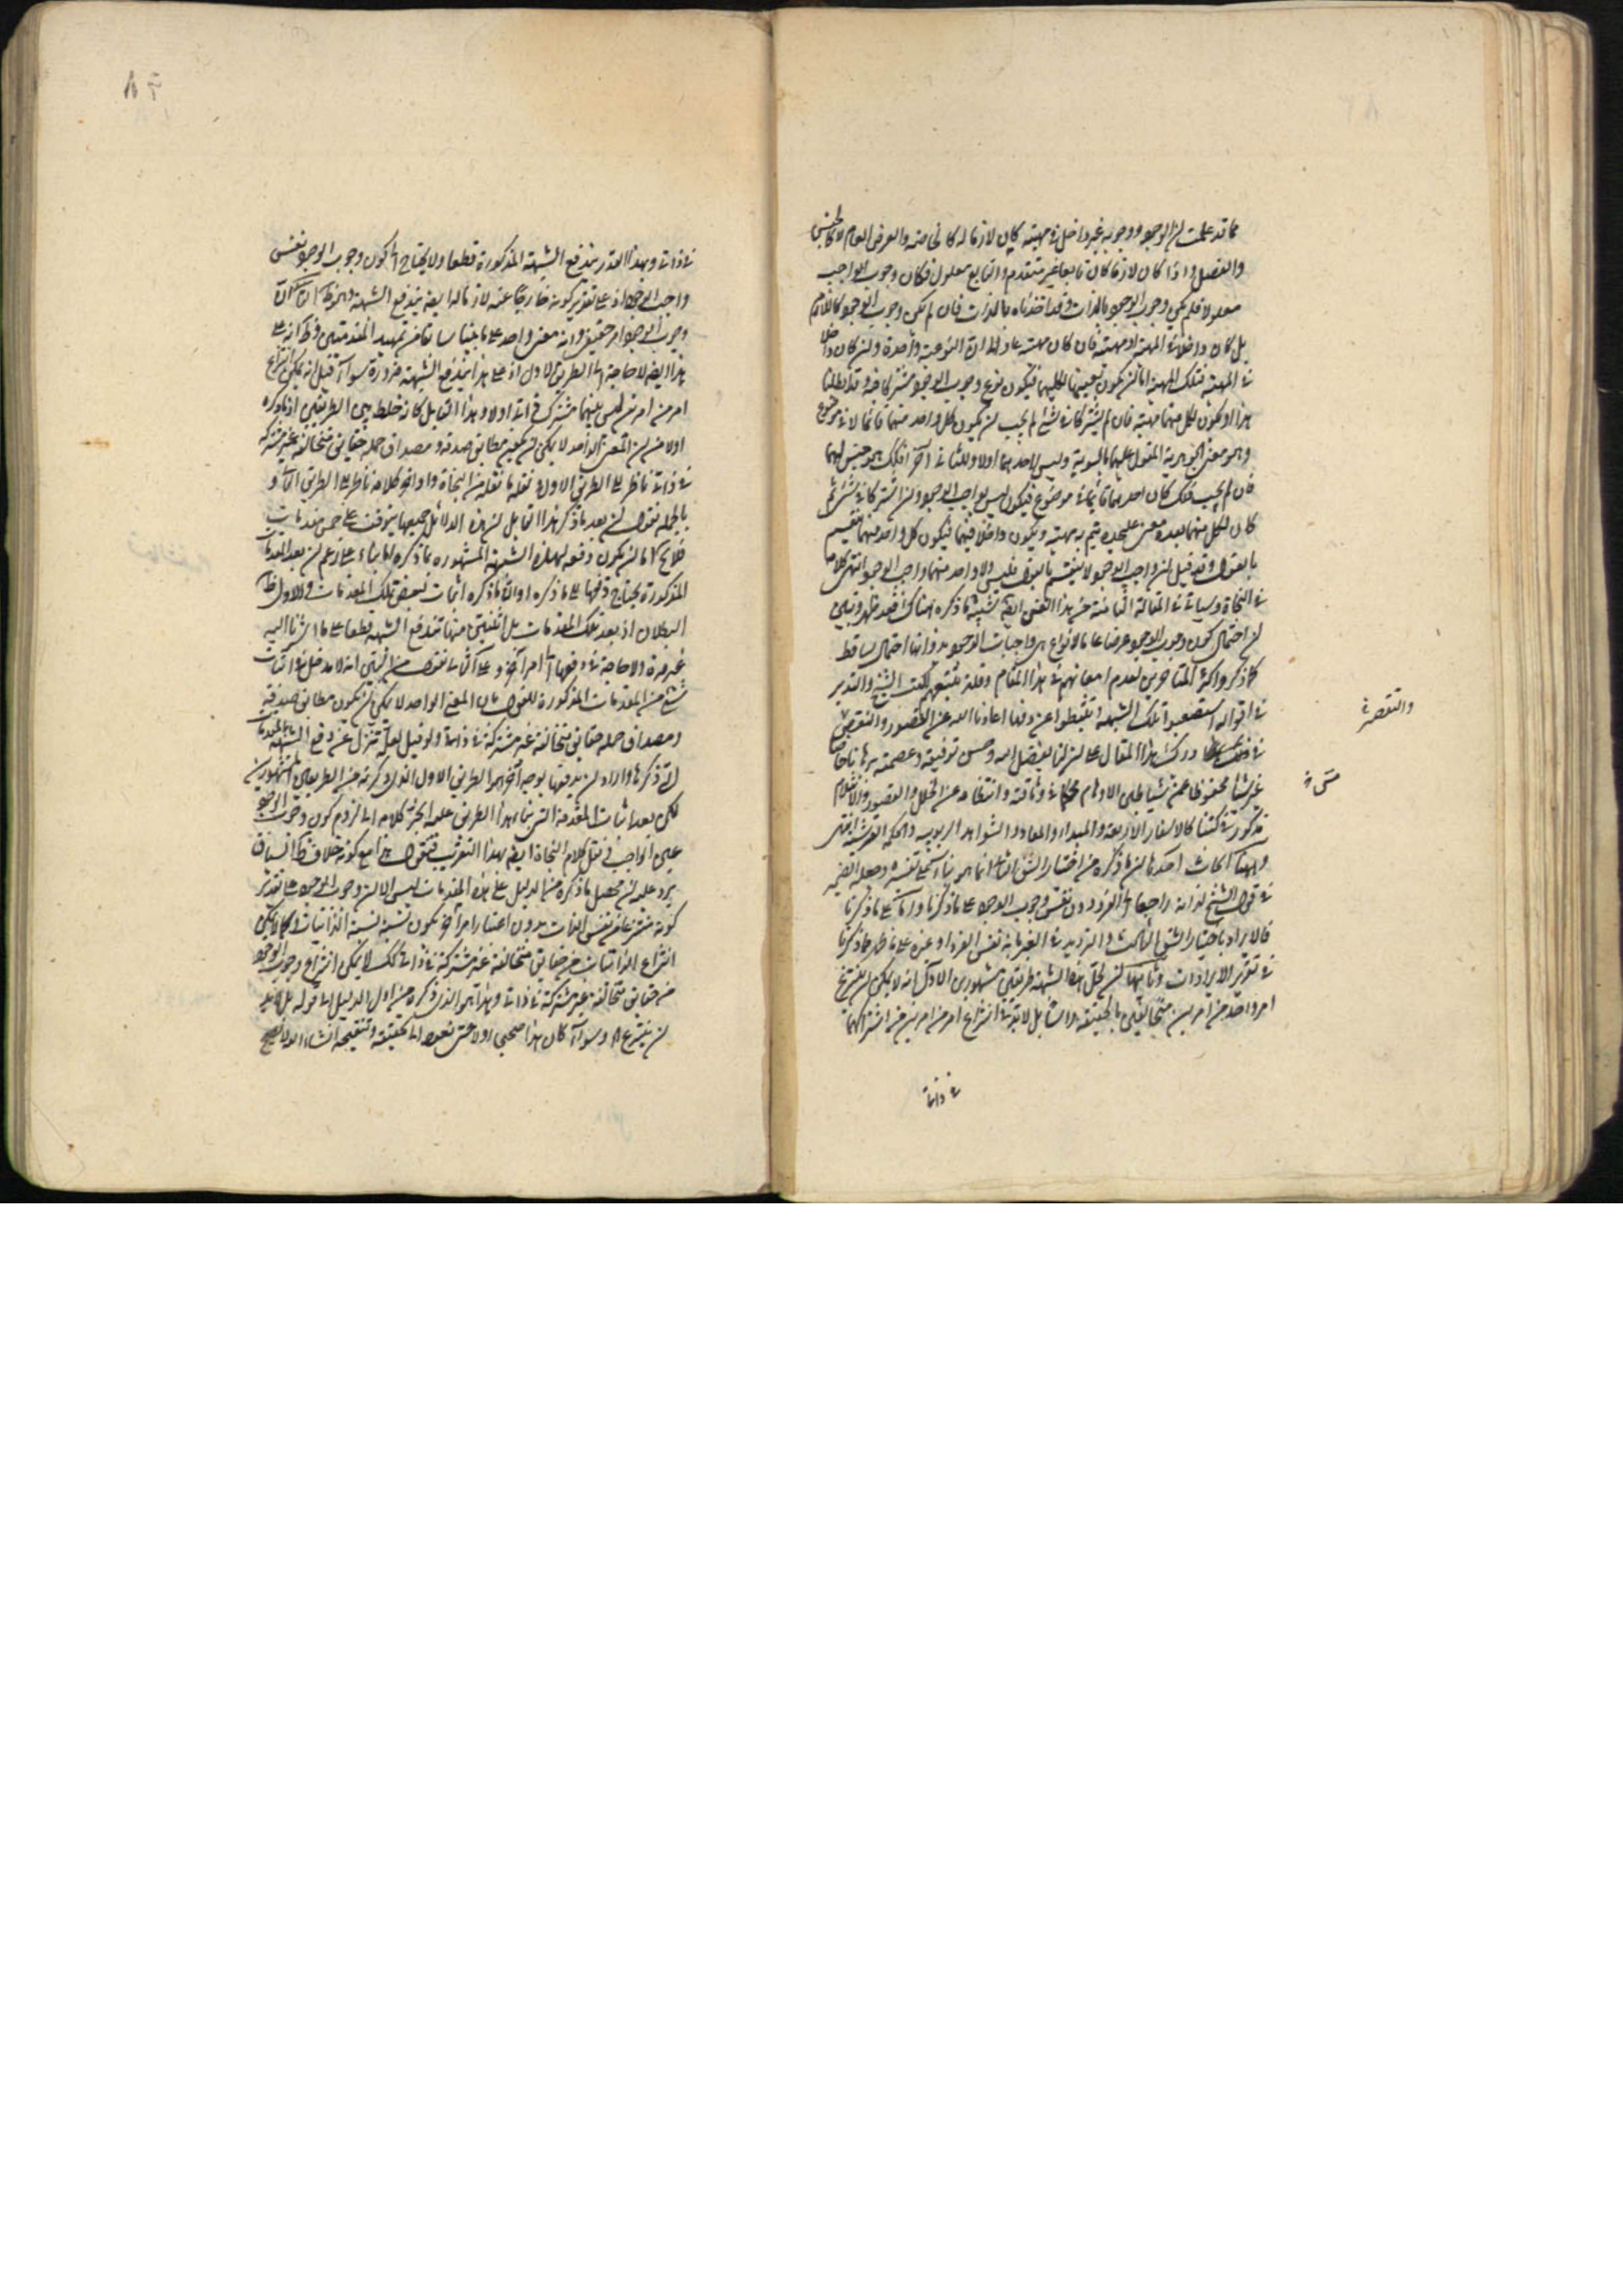 مما قد علمت ان الوجود ووجوبه غير داخل في مهيته كان لازما له كالخاصة والعرض العام لا كالجنس
والفصل واذا كان لازما كان تابعا غير متقدم والتابع معلول فكان وجوب الواجب
معلولا فلم يكن وجوب الوجود بالذات وقد اخذناه بالذات فان لم يكن وجوب الوجود كاللازم
بل كان داخلا في المهية او مهيته فان كان مهيته عاد الى ان النوعية واحدة وان كان داخلا
في المهية فتلك المهية اما ان يكون بعينها لكليهما فيكون نوع وجوب الوجود مشتركا فيه وقد ابطلنا
هذا او يكون لكل منهما مهية فان لم يشتركا في شئ لم يجب ان يكون كل واحد منهما قائما لا في موضوع
وهو معنى الجوهرية المقول عليهما بالسوية وليس لاحدهما اولا وللثاني آخرا فلذلك هو جنس لهما
فان لم يجب ذلك كان احدهما قائما في موضوع فيكون ليس بواجب الوجود وان اشتركا في شئ ثم
كان لكل منهما بعده معنى عليحدة يتم به مهيته ويكون داخلا فيها فيكون كل واحد منهما منقسم
بالقول وقد قيل ان واجب الوجود لا ينقسم بالقول فليس ولا واحد منهما واجب الوجود انتهى كلامه
في النجاة وسيأتي في المقالة الثامنة من هذا الفن ايضا شبيه ما ذكره هناك فقد ظهر وتبين
ان احتمال كون وجوب الوجود عرضا عاما لانواع هي واجبات الوجود بذواتها احتمال ساقط
كما ذكروا اكثر المتأخرين لعدم امعانهم في هذا المقام وقلة تتبعهم لكتب الشيخ والتدبر
في اقواله استصعبوا تلك الشبهة وتثبطوا عن دفعها اعاذنا الله عن القصور والنقص
في درك هذا المقال على ان لنا بفضل الله وحسن توفيقه وعصمته برهانا خاصا
عرشيا محفوظا عن شياطين الاوهام محكما في وثاقته وانتظامه عن الخلل والقصور والانثلام
مذكور في كتبنا كالاسفار الاربعة والمبدء والمعاد والشواهد الربوبية والحكمة العرشية
وههنا ابحاث احدها ان ما ذكره من اختيار الشق الثالث انما هو بناء على تفسيره وجعله الضمير
في قول الشيخ لذاته راجعا الى الفرد دون نفس وجوب الوجود على ما ذكرنا واما على ما ذكرنا
فالايراد باختيار الشق الثالث والترديد في الغير بانه نفس الفرد او غيره على ما ظهر مما ذكرنا
في تقرير الايرادات وثانيها ان لحل هذه الشبهة طريقين مشهورين الاول انه لا يمكن ان ينتزع
امر واحد من امرين متخالفين بالحقيقة بل لا بد في انتزاع امر من امرين من اشتراكهما
في ذاتي
والتقصير في
في ذاتي وبهذا القدر يندفع الشبهة المذكورة قطعا ولا يحتاج الى كون وجوب الوجود نفس
واجب الوجود اذ على تقدير كونه خارجا عنه لازما له ايضا يندفع الشبهة وهو ظاهر الثاني ان
وجوب الوجود امر حقيقي وانه معنى واحد على ما بينا سابقا في تمهيد المقدمتين وظاهر انه على
هذا ايضا لا حاجة الى الطريق الاول اذ على هذا يندفع الشبهة ضرورة سواء قيل انه يمكن انتزاع
امر من امرين ليس بينهما مشترك ذاتي او لا وهذا القائل كانه خلط بين الطريقين اذ ما ذكره
اولا من ان المعنى الواحد لا يمكن ان يكون مطابق صدقه ومصداق حمله حقائق متخالفة غير مشتركة
في ذاتي ناظر الى الطريق الاول وما نقله من النجاة واواخر كلامه ناظر الى الطريق الثاني و
بالجملة نقول ان بعد ما ذكر هذا القائل ان هذه الدلائل جميعها يتوقف على خمس مقدمات
فلا يخ اما ان يكون دفعه لهذه الشبهة المشهورة بما ذكره بناء على زعم ان بعد المقدمات
المذكورة يحتاج دفعها الى ما ذكره او ان ما ذكره اثبات لبعض تلك المقدمات والاول ظاهر
البطلان اذ بعد تلك المقدمات بل اثنتين منها تندفع الشبهة قطعا على ما اشرنا اليه
غير مرة ولا حاجة في دفعها الى امر آخر وعلى الثاني نقول من البين انه لا مدخل في اثبات
شئ من المقدمات المذكورة للقول بان المعنى الواحد لا يمكن ان يكون مطابق صدقه
ومصداق حمله حقائق متخالفة غير مشتركة في ذاتي ولو قيل لعله تنزل عن دفع الشبهة بالمقدمات
التي ذكرها واراد ان يدفعها بوجه آخر هو الطريق الاول الذي ذكرته من الطريقين المشهورين
لكن بعد اثبات المقدمة التي بناء هذا الطريق عليه انجر كلامه الى لزوم كون وجوب الوجود
عين الواجب فنقل كلام النجاة ايضا بهذا التقريب فنقول مع كونه خلاف ظاهر السياق
يرد عليه ان محصل ما ذكره من الدليل على هذه المقدمات ليس الا ان وجوب الوجود على تقدير
كونه منتزعا من نفس الذات بدون اعتبار امر آخر يكون نسبته نسبة الذاتيات وكما لا يمكن
انتزاع الذاتيات من حقائق متخالفة غير مشتركة في ذاتي كذلك لا يمكن انتزاع وجوب الوجود
من حقائق متخالفة غير مشتركة في ذاتي وهذا هو الذي ذكره من اول الدليل الى قوله بل لا بد
ان ينتزع اه وسواء كان هذا صحيحا او لا حتى نعود الى تحقيقه وتنقيحه انشاء الله لا يصح